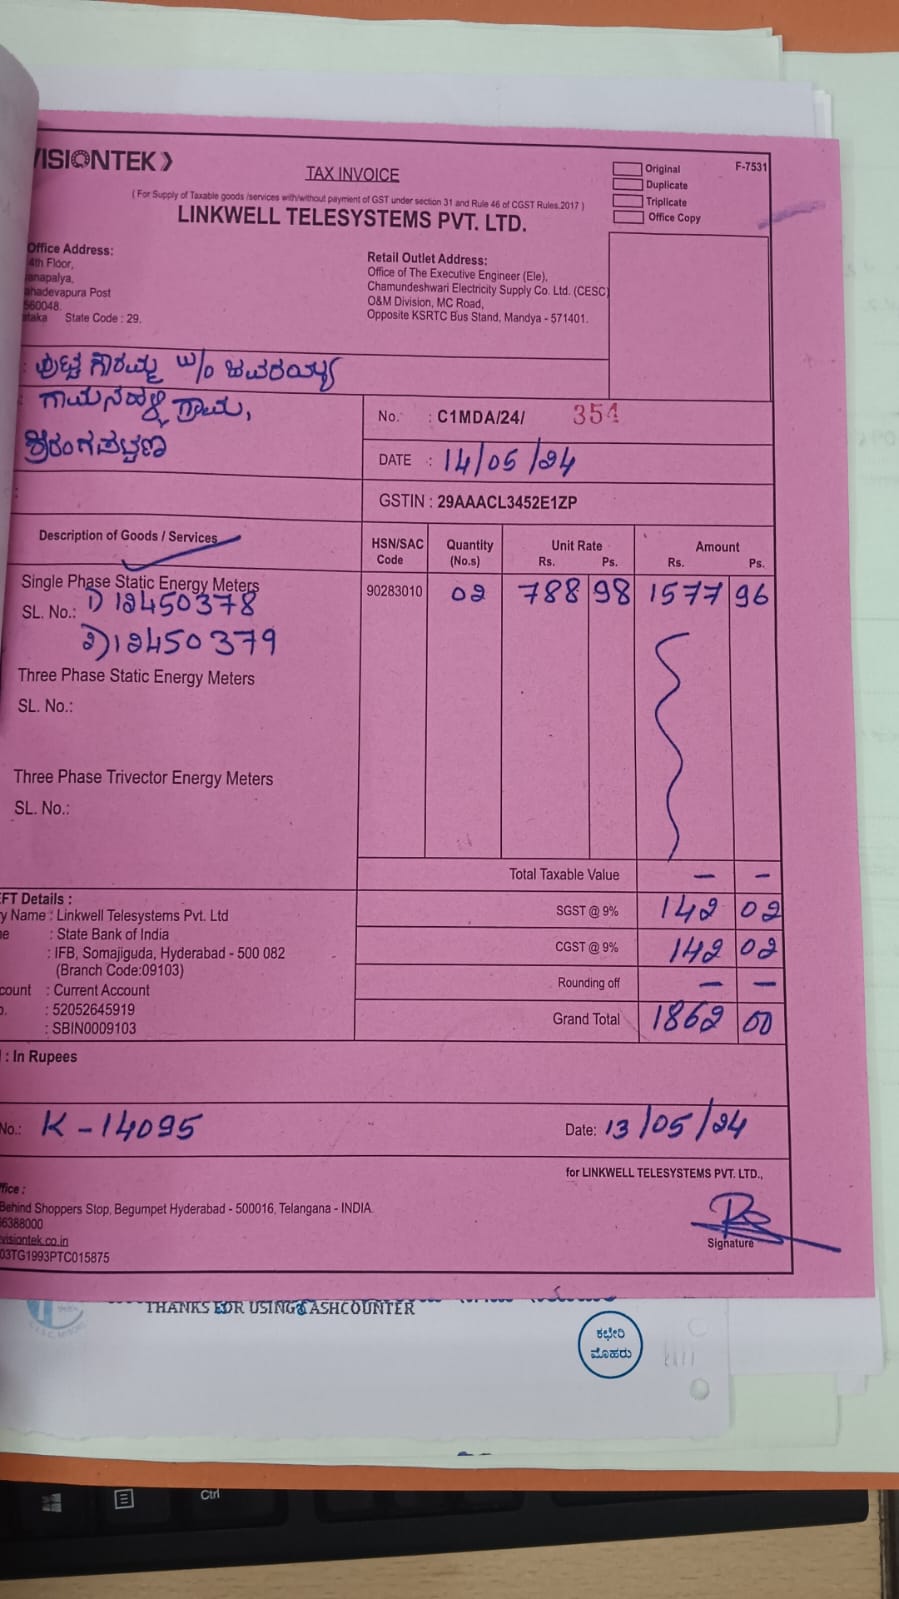 VISIONTEK
TAX INVOICE
( For Supply of Taxable goods /services with/without payment of GST under section 31 and Rule 46 of CGST Rules.2017 )
LINKWELL TELESYSTEMS PVT. LTD.
Original
Duplicate
Triplicate
Office Copy
F-7531
Office Address:
4th Floor,
anapalya,
hadevapura Post
560048.
ataka State Code : 29.
Retail Outlet Address:
Office of The Executive Engineer (Ele),
Chamundeshwari Electricity Supply Co. Ltd. (CESC)
O&M Division, MC Road,
Opposite KSRTC Bus Stand, Mandya - 571401.
: ಪುಟ್ಟ ಗೌರಮ್ಮ W/o ಜವರಯ್ಯ
: ಗಾಮನಹಳ್ಳಿ ಗ್ರಾಮ,
ಶ್ರೀರಂಗಪಟ್ಟಣ
No. : C1MDA/24/ 354
DATE : 14/05/24
GSTIN : 29AAACL3452E1ZP
Description of Goods / Services
HSN/SAC Code
Quantity (No.s)
Unit Rate Rs. Ps.
Amount Rs. Ps.
Single Phase Static Energy Meters 90283010 02 788 98 1577 96
SL. No.: 1) 12450378
2) 12450379
Three Phase Static Energy Meters
SL. No.:
Three Phase Trivector Energy Meters
SL. No.:
Total Taxable Value — —
SGST @ 9% 142 02
CGST @ 9% 142 02
Rounding off — —
Grand Total 1862 00
EFT Details :
y Name : Linkwell Telesystems Pvt. Ltd
me : State Bank of India
: IFB, Somajiguda, Hyderabad - 500 082
(Branch Code:09103)
count : Current Account
o. : 52052645919
: SBIN0009103
: In Rupees
No.: K - 14095
Date: 13/05/24
for LINKWELL TELESYSTEMS PVT. LTD.,
ffice :
Behind Shoppers Stop, Begumpet Hyderabad - 500016, Telangana - INDIA.
66388000
visiontek.co.in
03TG1993PTC015875
Signature
THANKS FOR USING CASHCOUNTER
ಕಛೇರಿ
ಮೊಹರು
Ctrl